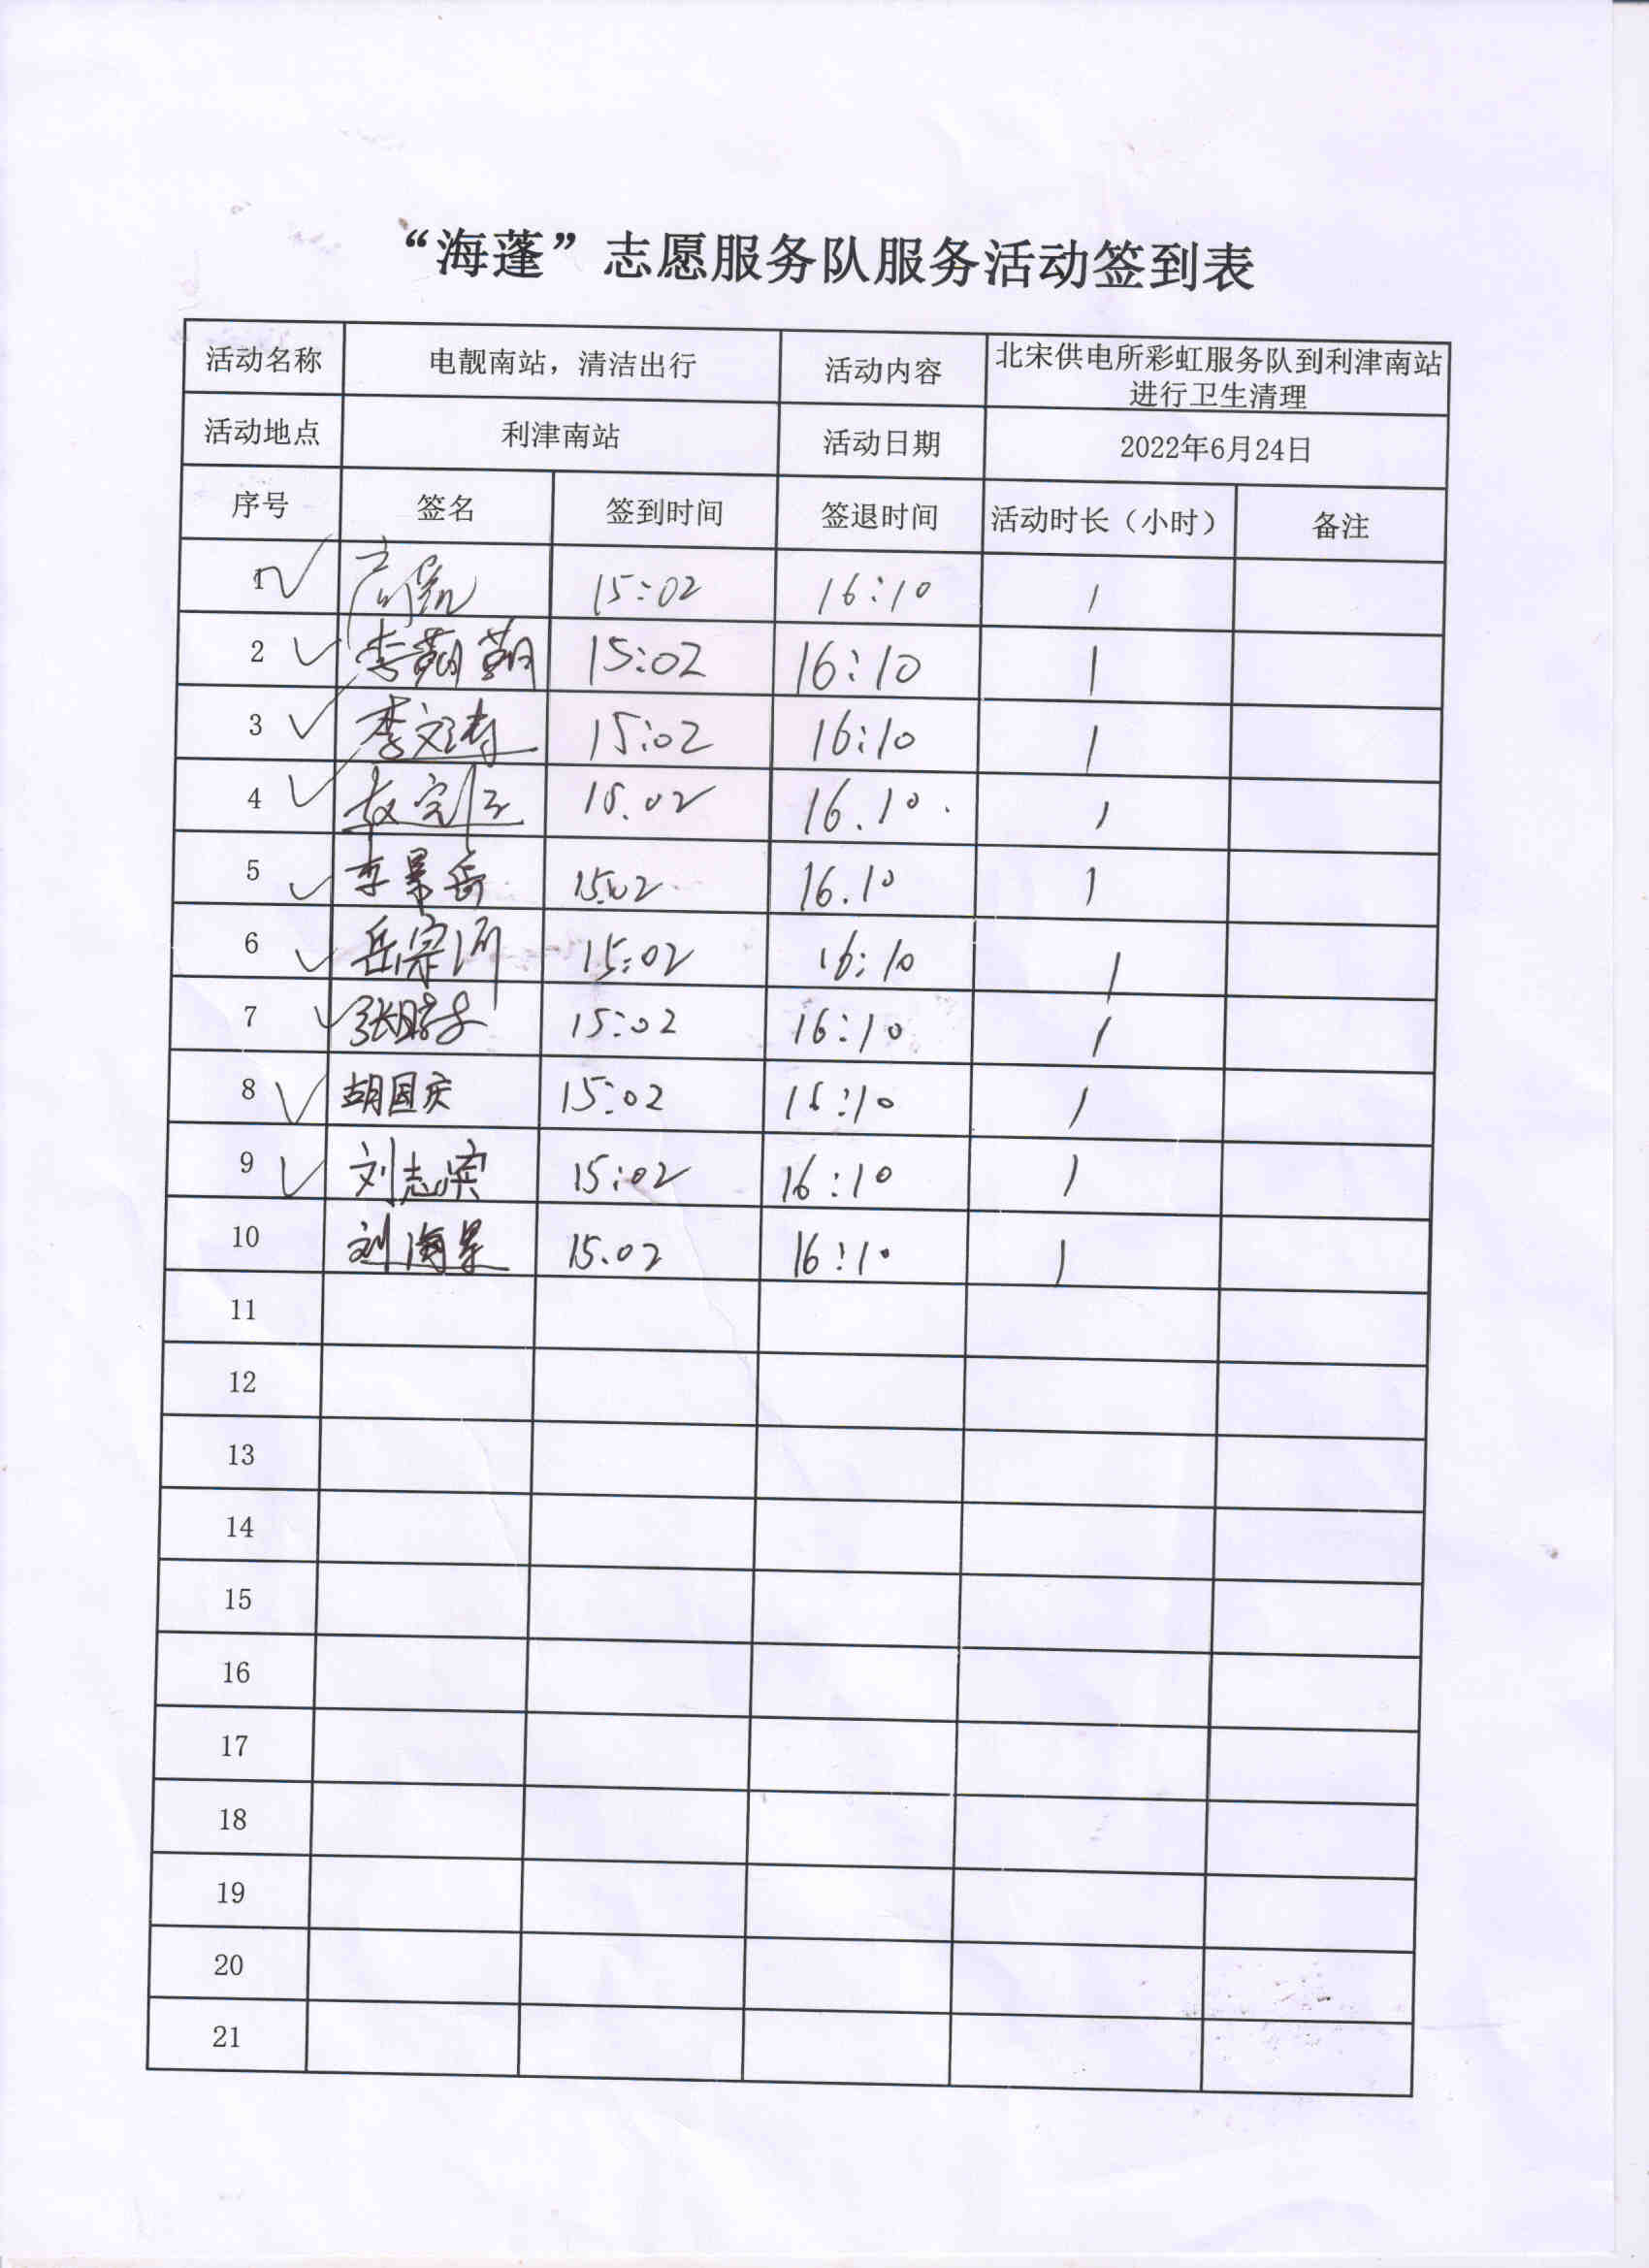 “海蓬”志愿服务队服务活动签到表
活动名称 电靓南站，清洁出行 活动内容 北宋供电所彩虹服务队到利津南站
进行卫生清理
活动地点 利津南站 活动日期 2022年6月24日
序号 签名 签到时间 签退时间 活动时长（小时） 备注
1 15:02 16:10 1
2 李勤勤 15:02 16:10 1
3 李文涛 15:02 16:10 1
4 15.02 16.10. 1
5 李景岳 15.02 16.10 1
6 岳宗河 15:02 16:10 1
7 15:02 16:10 1
8 胡国庆 15:02 16:10 1
9 刘志滨 15:02 16:10 1
10 刘海星 15.02 16:10 1
11
12
13
14
15
16
17
18
19
20
21